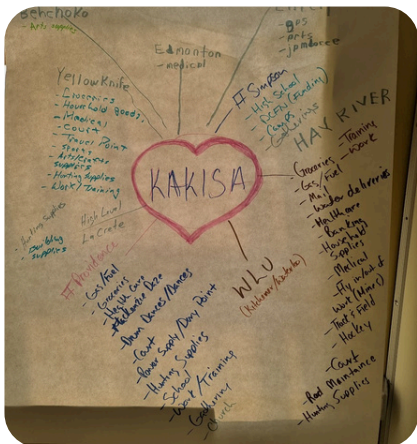 Behchoko
- Arts supplies
Edmonton
- medical
- gas
- arts
- jamboree
Yellowknife
- Groceries
- Household goods
- Medical
- Court
- Travel Point
- Arts/Crafts
supplies
- Hunting Supplies
- Work/Training
Ft Simpson
- High School
- DCFN (Funding)
- Camps
- Gatherings
HAY RIVER
- Training
- Work
- Groceries
- Gas/Fuel
- Mail
- Water deliveries
- Healthcare
- Banking
- Household
Supplies
- Medical
- Fly in/out of
- Work (Mines)
- Track & Field
- Hockey
- Court
- Road Maintaince
- Hunting Supplies
KAKISA
High Level
La Crete
- Building
supplies
Ft Providence
- Gas/Fuel
- Groceries
- Health Care
- Mackenzie Daze
- Drum Dances/Dances
- Court
- Power Supply/Dory Point
- Hunting Supplies
- School
- Work/Training
- Gathering
- Church
WLU
(Kitchener/Waterloo)